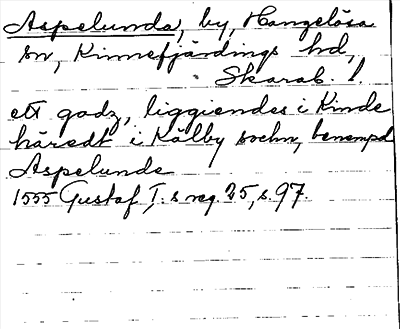 Aspelunda, by, Hangelösa
sn, Kinnefjärdings hd,
Skarab. l.
ett godz, liggiendes i Kinde
häredt i Kälby sochn, benempd
Aspelunde
1555 Gustaf I. s reg. 25, s. 97.